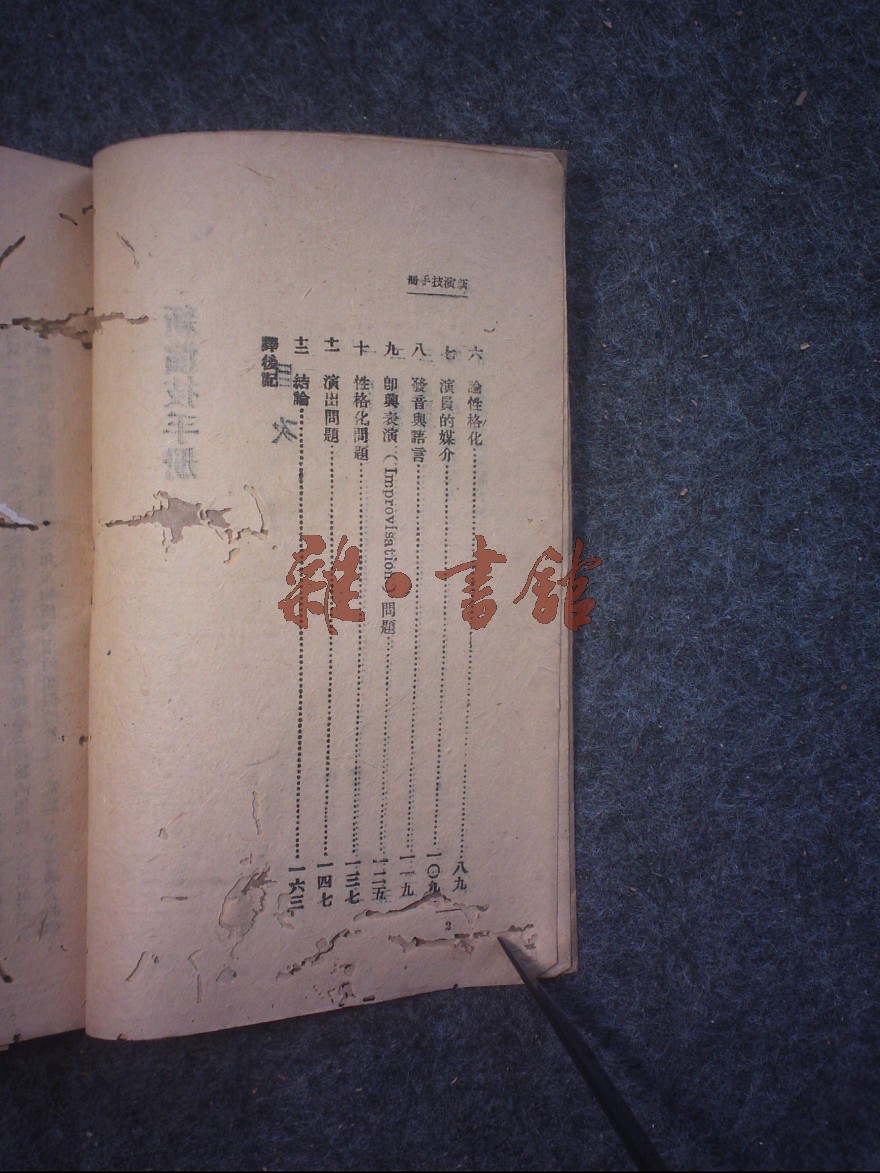 新演技手册
六 論性格化 八九
七 演員的媒介 一〇九
八 發音與語言 一一九
九 卽興表演（Improvisation）問題 一二五
十 性格化問題 一三七
十一 演出問題 一四七
十二 結論 一六三
譯後記
目次
2
新演技手册
雜·書館